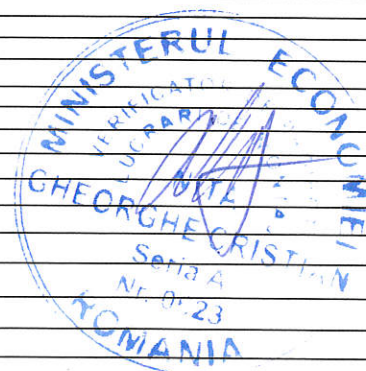 MINISTERUL ECONOMIEI
VERIFICATOR
LUCRAR
NIȚĂ
GHEORGHE CRISTIAN
Seria A
Nr.
ROMANIA